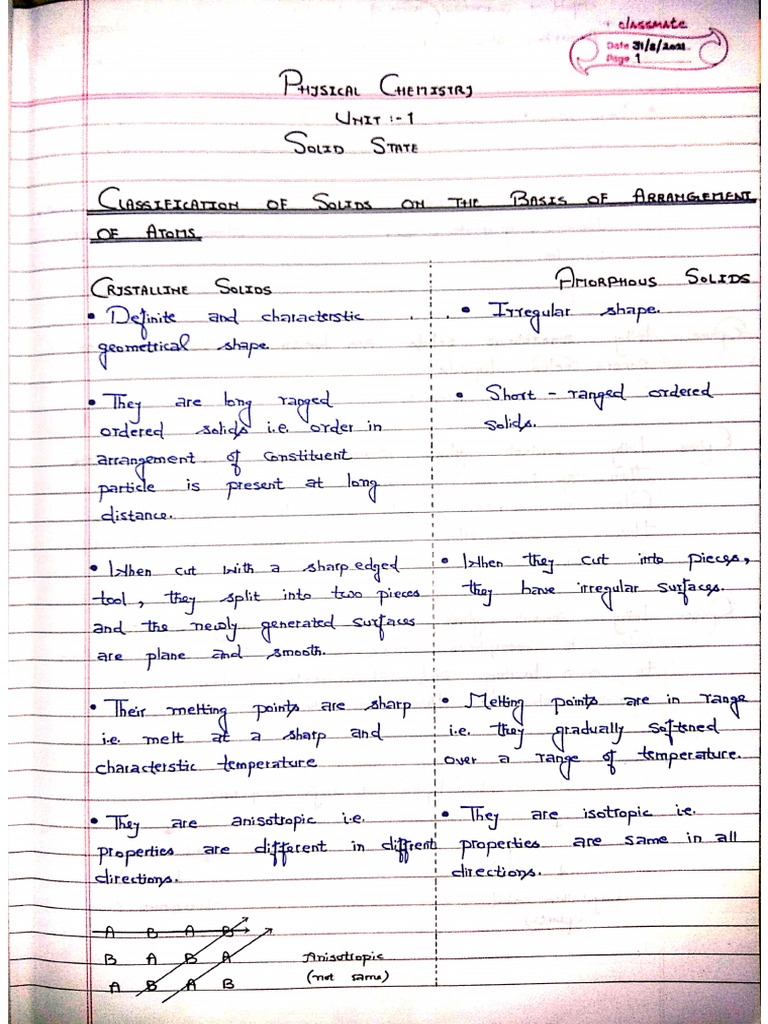 classmate
Date 31/8/2021
Page 1
PHYSICAL CHEMISTRY
UNIT :- 1
SOLID STATE
CLASSIFICATION OF SOLIDS ON THE BASIS OF ARRANGEMENT
OF ATOMS
CRYSTALLINE SOLIDS
• Definite and characterstic
geometrical shape.
• They are long ranged
ordered solids i.e. order in
arrangement of constituent
particle is present at long
distance.
• When cut with a sharp edged
tool, they split into two pieces
and the newly generated surfaces
are plane and smooth.
• Their melting points are sharp
i.e. melt at a sharp and
characterstic temperature
• They are anisotropic i.e.
properties are different in diffrent
directions.
A B A B
B A B A
A B A B
Anisotropic
(not same)
AMORPHOUS SOLIDS
• Irregular shape.
• Short - ranged ordered
solids.
• When they cut into pieces,
they have irregular surfaces.
• Melting points are in range
i.e. they gradually softened
over a range of temperature.
• They are isotropic i.e.
properties are same in all
directions.